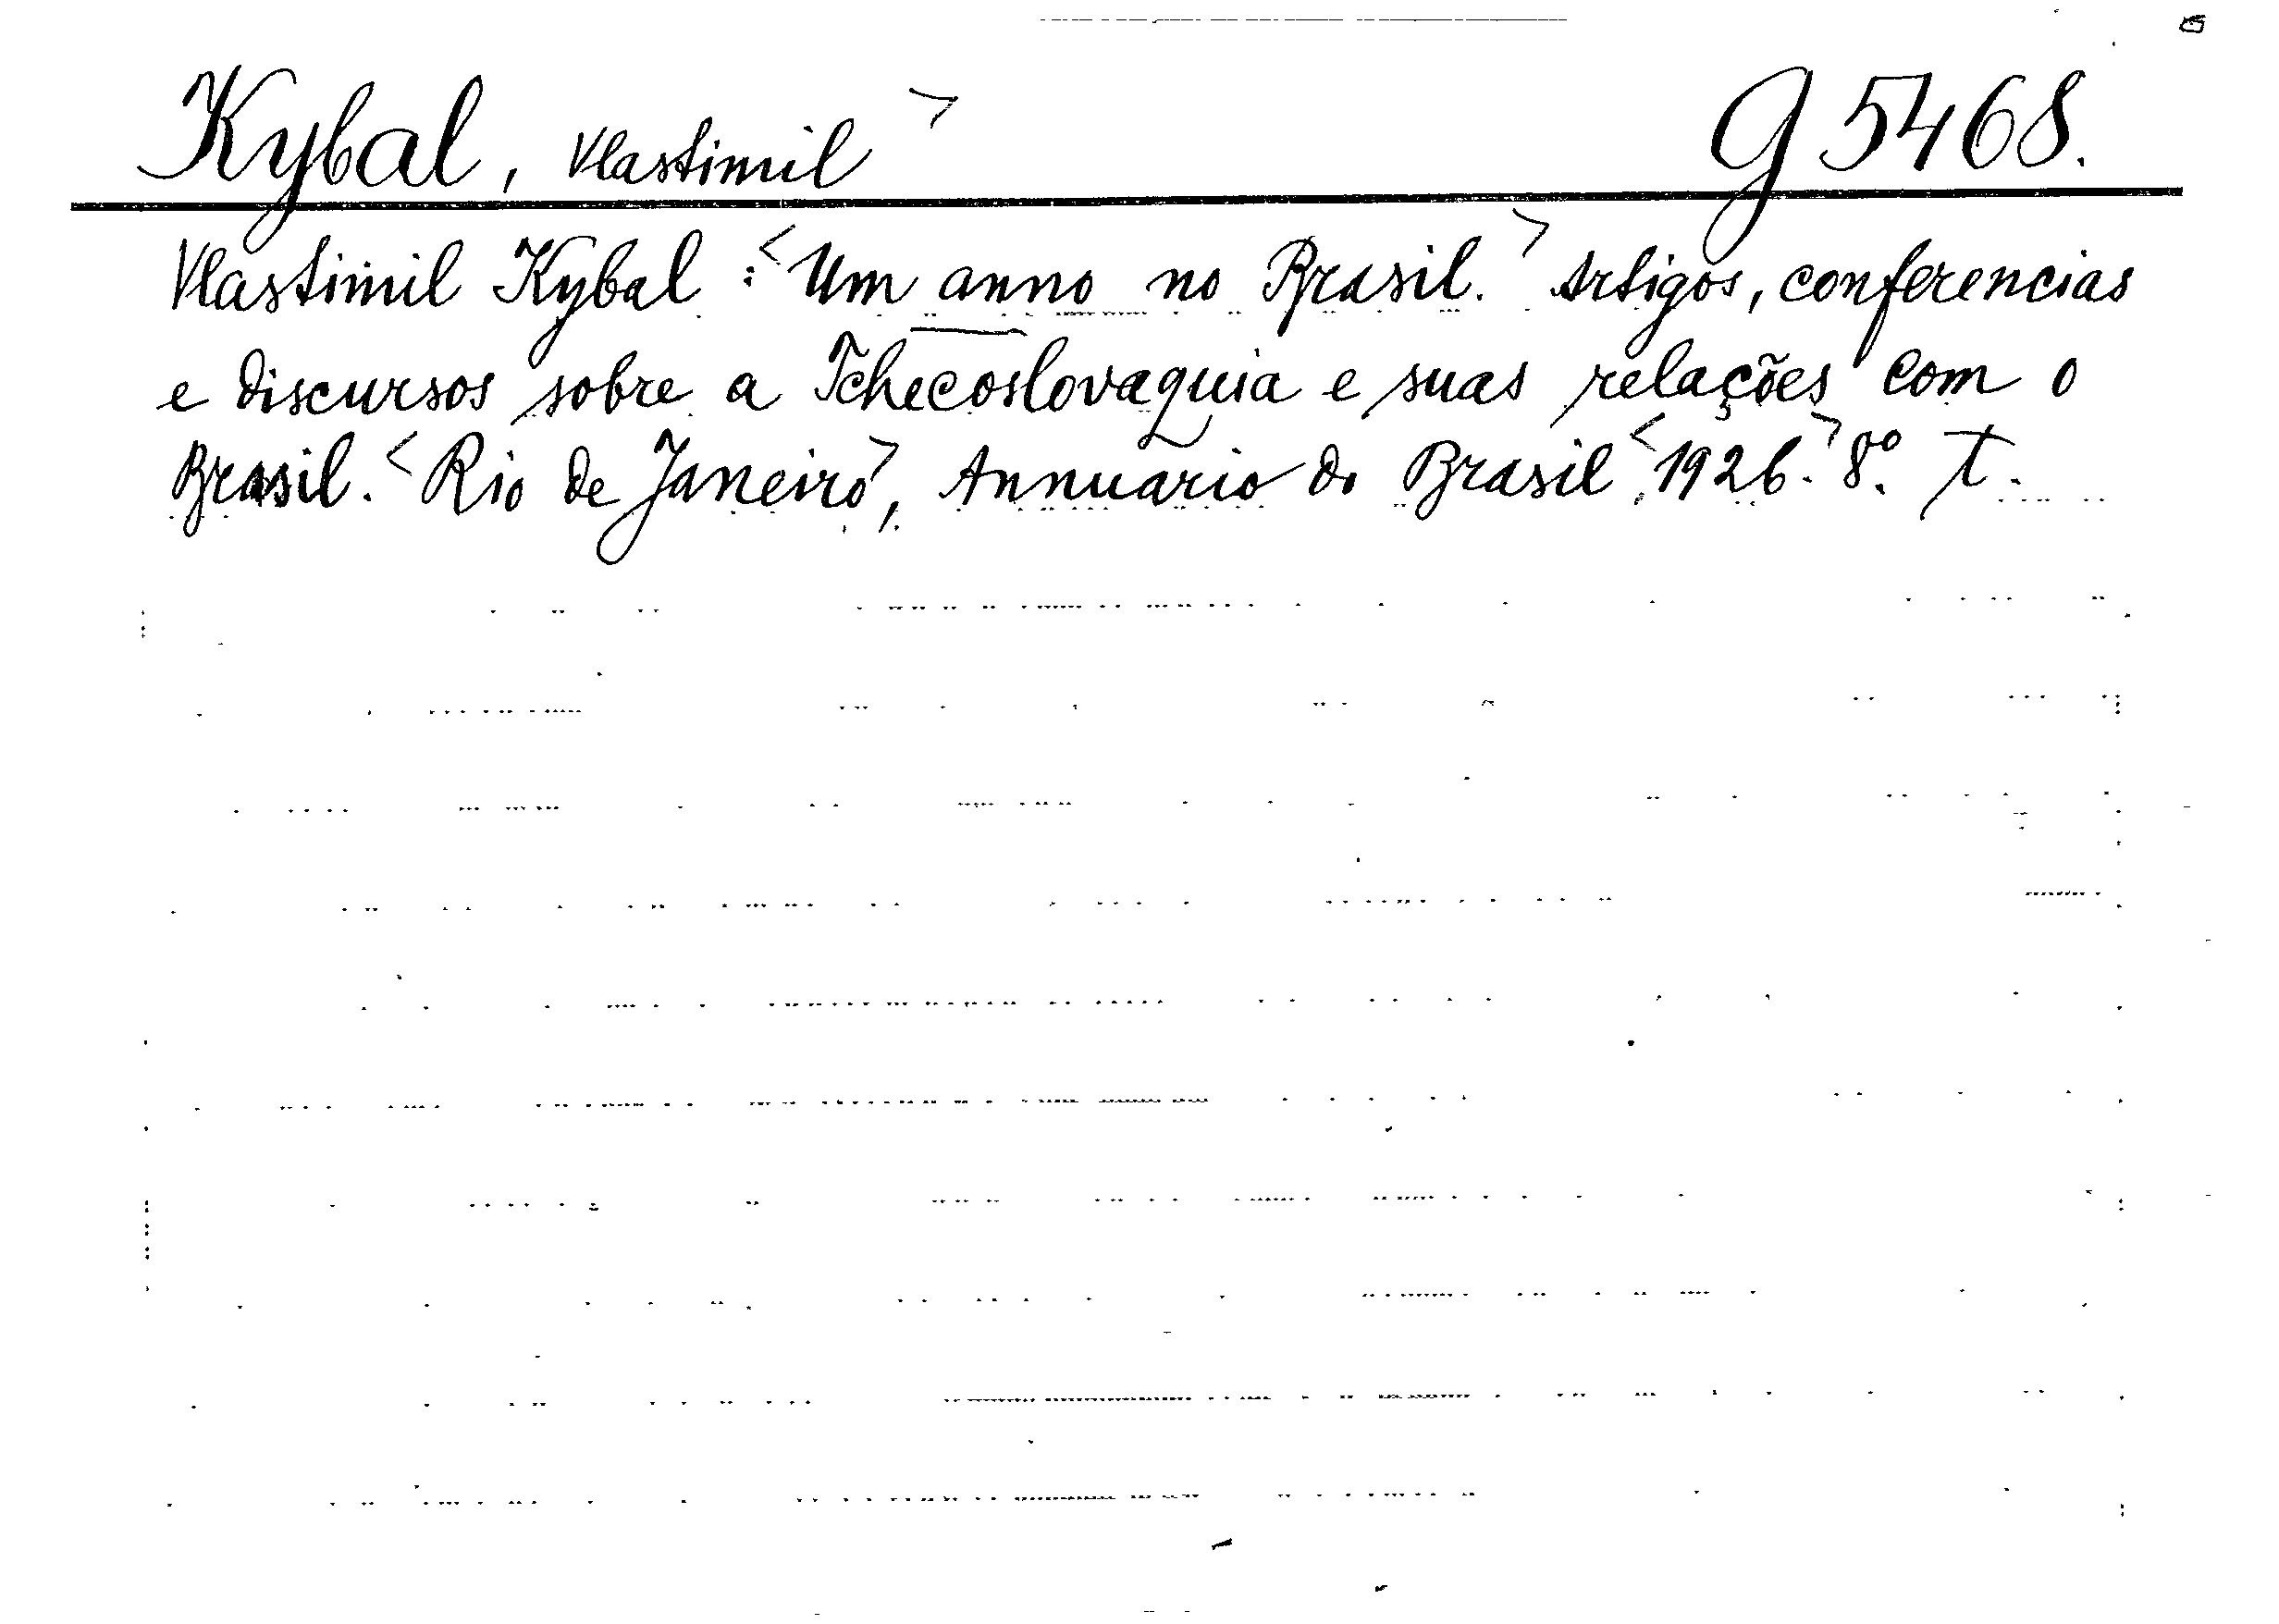 Kybal, Vlastimil > G 5468.
Vlastimil Kybal : < Um anno no Brasil. > Artigos, conferencias
e discursos sobre a Tchecoslovaquia e suas relações com o
Brasil. < Rio de Janeiro >, Annuario do Brasil < 1926. > 8º. T.